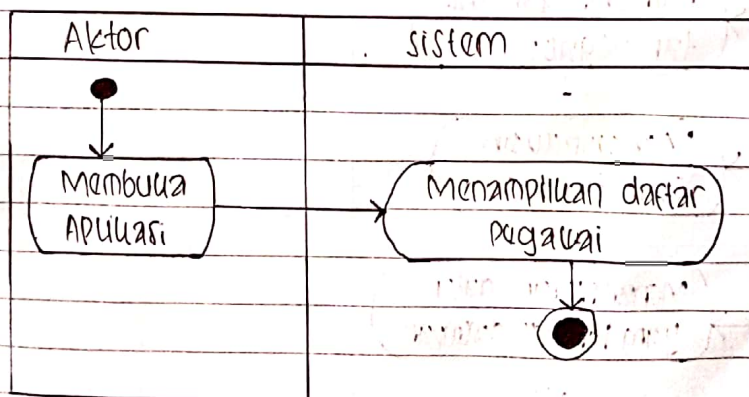 Aktor
sistem
Membuka
Aplikasi
Menampilkan daftar
pegawai